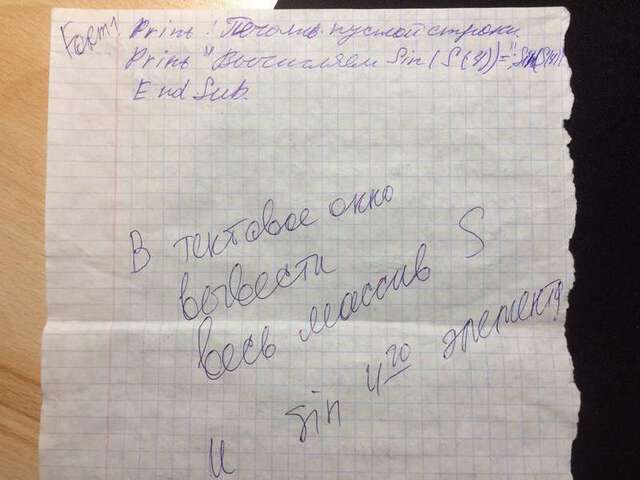 Form1 Print ! Печать пустой строки
Print "Вычисляем Sin(S(4))=";Sin(S(4))
End Sub
В тектовое окно
вывести
весь массив S
и sin 4го элемента